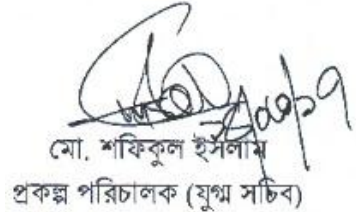 মো. শফিকুল ইসলাম
প্রকল্প পরিচালক (যুগ্ম সচিব)